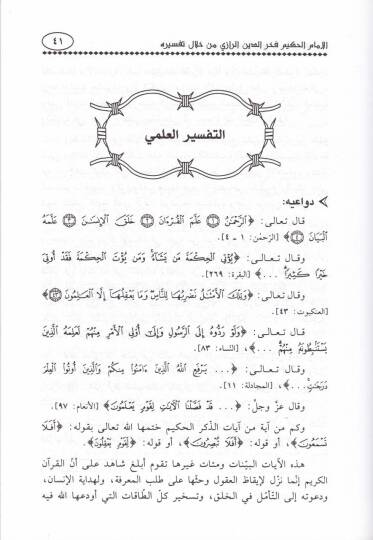 الإمام الحكيم فخر الدين الرازي من خلال تفسيره
٤١
التفسير العلمي
دواعيه:
قال تعالى: ﴿الرَّحْمَٰنُ ① عَلَّمَ الْقُرْءَانَ ② خَلَقَ الْإِنسَٰنَ ③ عَلَّمَهُ
الْبَيَانَ ④﴾ [الرحمٰن: ١ ـ ٤].
وقال تعالى: ﴿يُؤْتِى الْحِكْمَةَ مَن يَشَآءُ وَمَن يُؤْتَ الْحِكْمَةَ فَقَدْ أُوتِىَ
خَيْرًا كَثِيرًا ...﴾ [البقرة: ٢٦٩].
وقال تعالى: ﴿وَتِلْكَ الْأَمْثَٰلُ نَضْرِبُهَا لِلنَّاسِ وَمَا يَعْقِلُهَآ إِلَّا الْعَٰلِمُونَ ㊸﴾
[العنكبوت: ٤٣].
قال تعالى: ﴿وَلَوْ رَدُّوهُ إِلَى الرَّسُولِ وَإِلَىٰٓ أُولِى الْأَمْرِ مِنْهُمْ لَعَلِمَهُ الَّذِينَ
يَسْتَنۢبِطُونَهُ مِنْهُمْ ...﴾، [النساء: ٨٣].
وقال تعالى: ﴿... يَرْفَعِ اللَّهُ الَّذِينَ ءَامَنُوا مِنكُمْ وَالَّذِينَ أُوتُوا الْعِلْمَ
دَرَجَٰتٍ ...﴾، [المجادلة: ١١].
وقال عزّ وجلّ: ﴿... قَدْ فَصَّلْنَا الْآيَٰتِ لِقَوْمٍ يَعْلَمُونَ﴾ [الأنعام: ٩٧].
وكم من آية من آيات الذّكر الحكيم ختمها الله تعالى بقوله: ﴿أَفَلَا
تَسْمَعُونَ﴾، أو قوله: ﴿أَفَلَا تُبْصِرُونَ﴾، أو قوله: ﴿لِقَوْمٍ يَعْقِلُونَ﴾.
هذه الآيات البيّنات ومئات غيرها تقوم أبلغ شاهد على أنّ القرآن
الكريم إنّما نزل لإيقاظ العقول وحثّها على طلب المعرفة، ولهداية الإنسان،
ودعوته إلى التأمّل في الخلق، وتسخير كلّ الطّاقات التي أودعها الله فيه